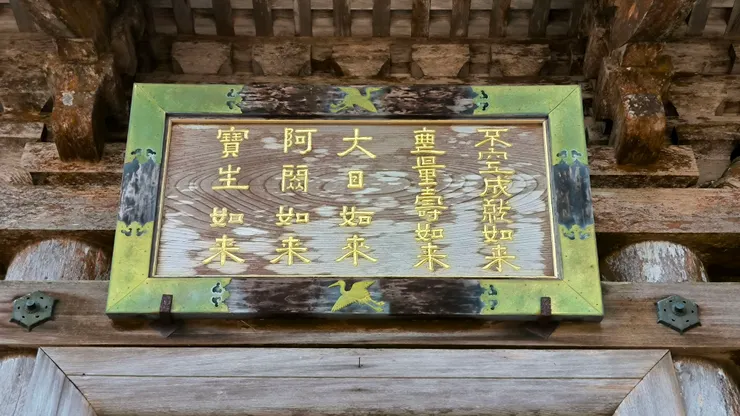 不空成就如来
無量壽如来
大日如來
阿閦如来
寶生如来